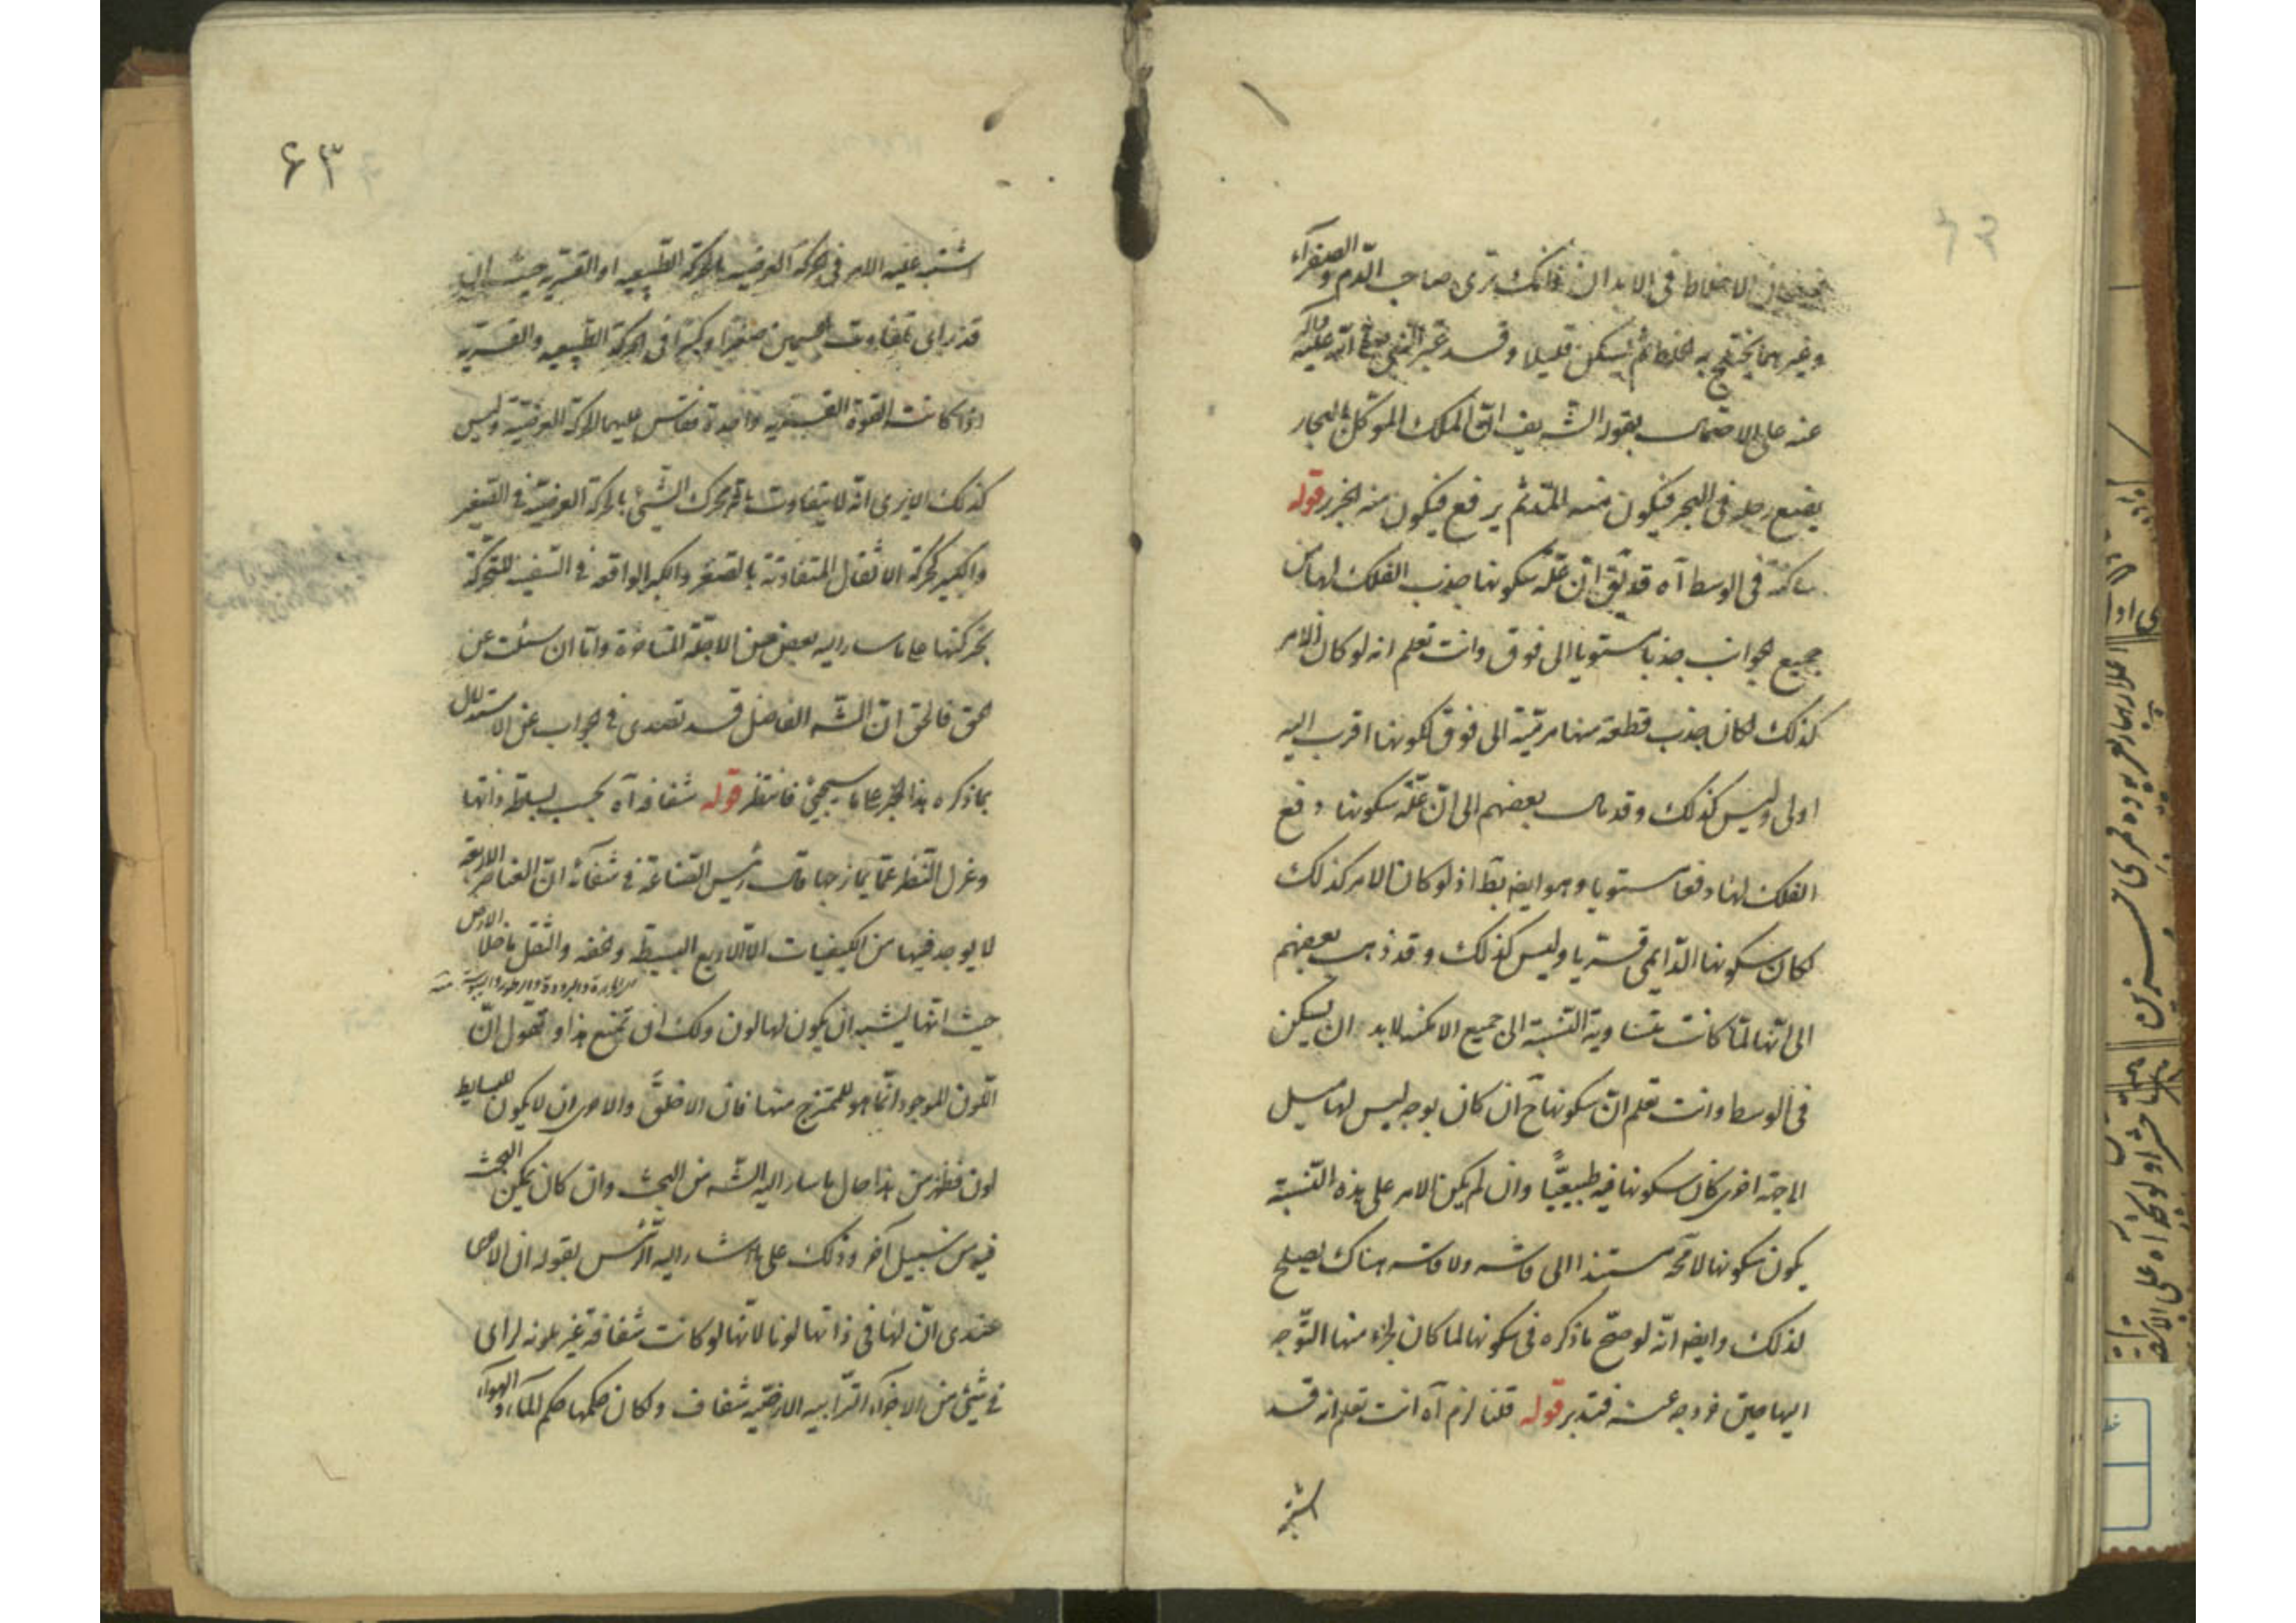 الاخلاط فى الابدان فانك ترى صاحب الدم والصفرآء
وغيرهما يختلج به الخلط ثم يسكن قليلا وقد عبر النبى صلى الله عليه وآله
عنه على الاجمال بقوله الشريف ان الملك الموكل بالبحار
يضع رجله فى البحر فيكون منه المد ثم يرفع فيكون منه الجزر قوله
ساكنة فى الوسط آه قد يق ان علة سكونها جذب الفلك لها من
جميع الجوانب جذبا مستويا الى فوق وانت تعلم انه لو كان الامر
كذلك لكان جذب قطعة منها مرمية الى فوق لكونها اقرب اليه
اولى وليس كذلك وقد مال بعضهم الى ان علة سكونها دفع
الفلك لها دفعا مستويا وهو ايضا بط اذ لو كان الامر كذلك
لكان سكونها الدايمى قسريا وليس كذلك وقد ذهب بعضهم
الى انها لما كانت متساوية النسبة الى جميع الامكنه لابد ان يسكن
فى الوسط وانت تعلم ان سكونها ح ان كان بوجه ليس لها ميل
الى جهة اخرى كان سكونها فيه طبيعيا وان لم يكن الامر على هذه النسبة
يكون سكونها لا محة مستندا الى قاسر ولا قاسر هناك يصلح
لذلك وايضا انه لو صح ما ذكره فى سكونها لما كان لجزء منها التوجه
اليها حين خروجه عنه فتدبر قوله قلنا لزم آه انت تعلم انه قد
اشتبه
۶۳
اشتبه عليه الامر فى الحركة العرضيه بالحركة الطبيعيه او القسريه حيث انه
قد راى تفاوت الجسمين صغرا وكبرا فى الحركة الطبيعيه والقسريه
اذا كانت القوة القسريه واحدة فقاس عليهما الحركة العرضية وليس
كذلك الا يرى انه لا يتفاوت تحرك الشيئ بالحركة العرضية فى الصغير
والكبير كحركة الاثقال المتفاوتة بالصغر والكبر الواقعه فى السفينه المتحركة
بحركتها على ما سار اليه بعض من الاجلة المتاخرة واما ان سئلت عن
الحق فالحق ان الشه الفاضل قد تصدى فى الجواب عن الاستدلال
بما ذكره هذا الحبر على ما سيجيئ فانتظر قوله شفافه آه بحسب بساطة ذاتها
وعزل النظر عما يمازجها قال رئيس الصناعة فى شفائه ان العناصر الاربعه
لا يوجد فيها من الكيفيات الا الاربع البسيطه والخفه والثقل ما خلا الارض
من الحرارة والبرودة والرطوبة واليبوسة منه
حيث انها يشبه ان يكون لها لون ولك ان تمنع هذا وتقول ان
اللون الموجود انما هو للممتزج منها فان الاخلق والاحرى ان لا يكون للبسايط
لون فظهر من هذا حال ما سار اليه الشه من البحث وان كان يمكن البحث
فيه من سبيل آخر وذلك على ما اشار اليه الرئيس بقوله ان الارض
عندى ان لها فى ذاتها لونا لانها لو كانت شفافة غير ملونه لراى
فى شيئ من الاجزآء الترابيه الارضيه شفاف ولكان حكمها حكم المآء والهوآء